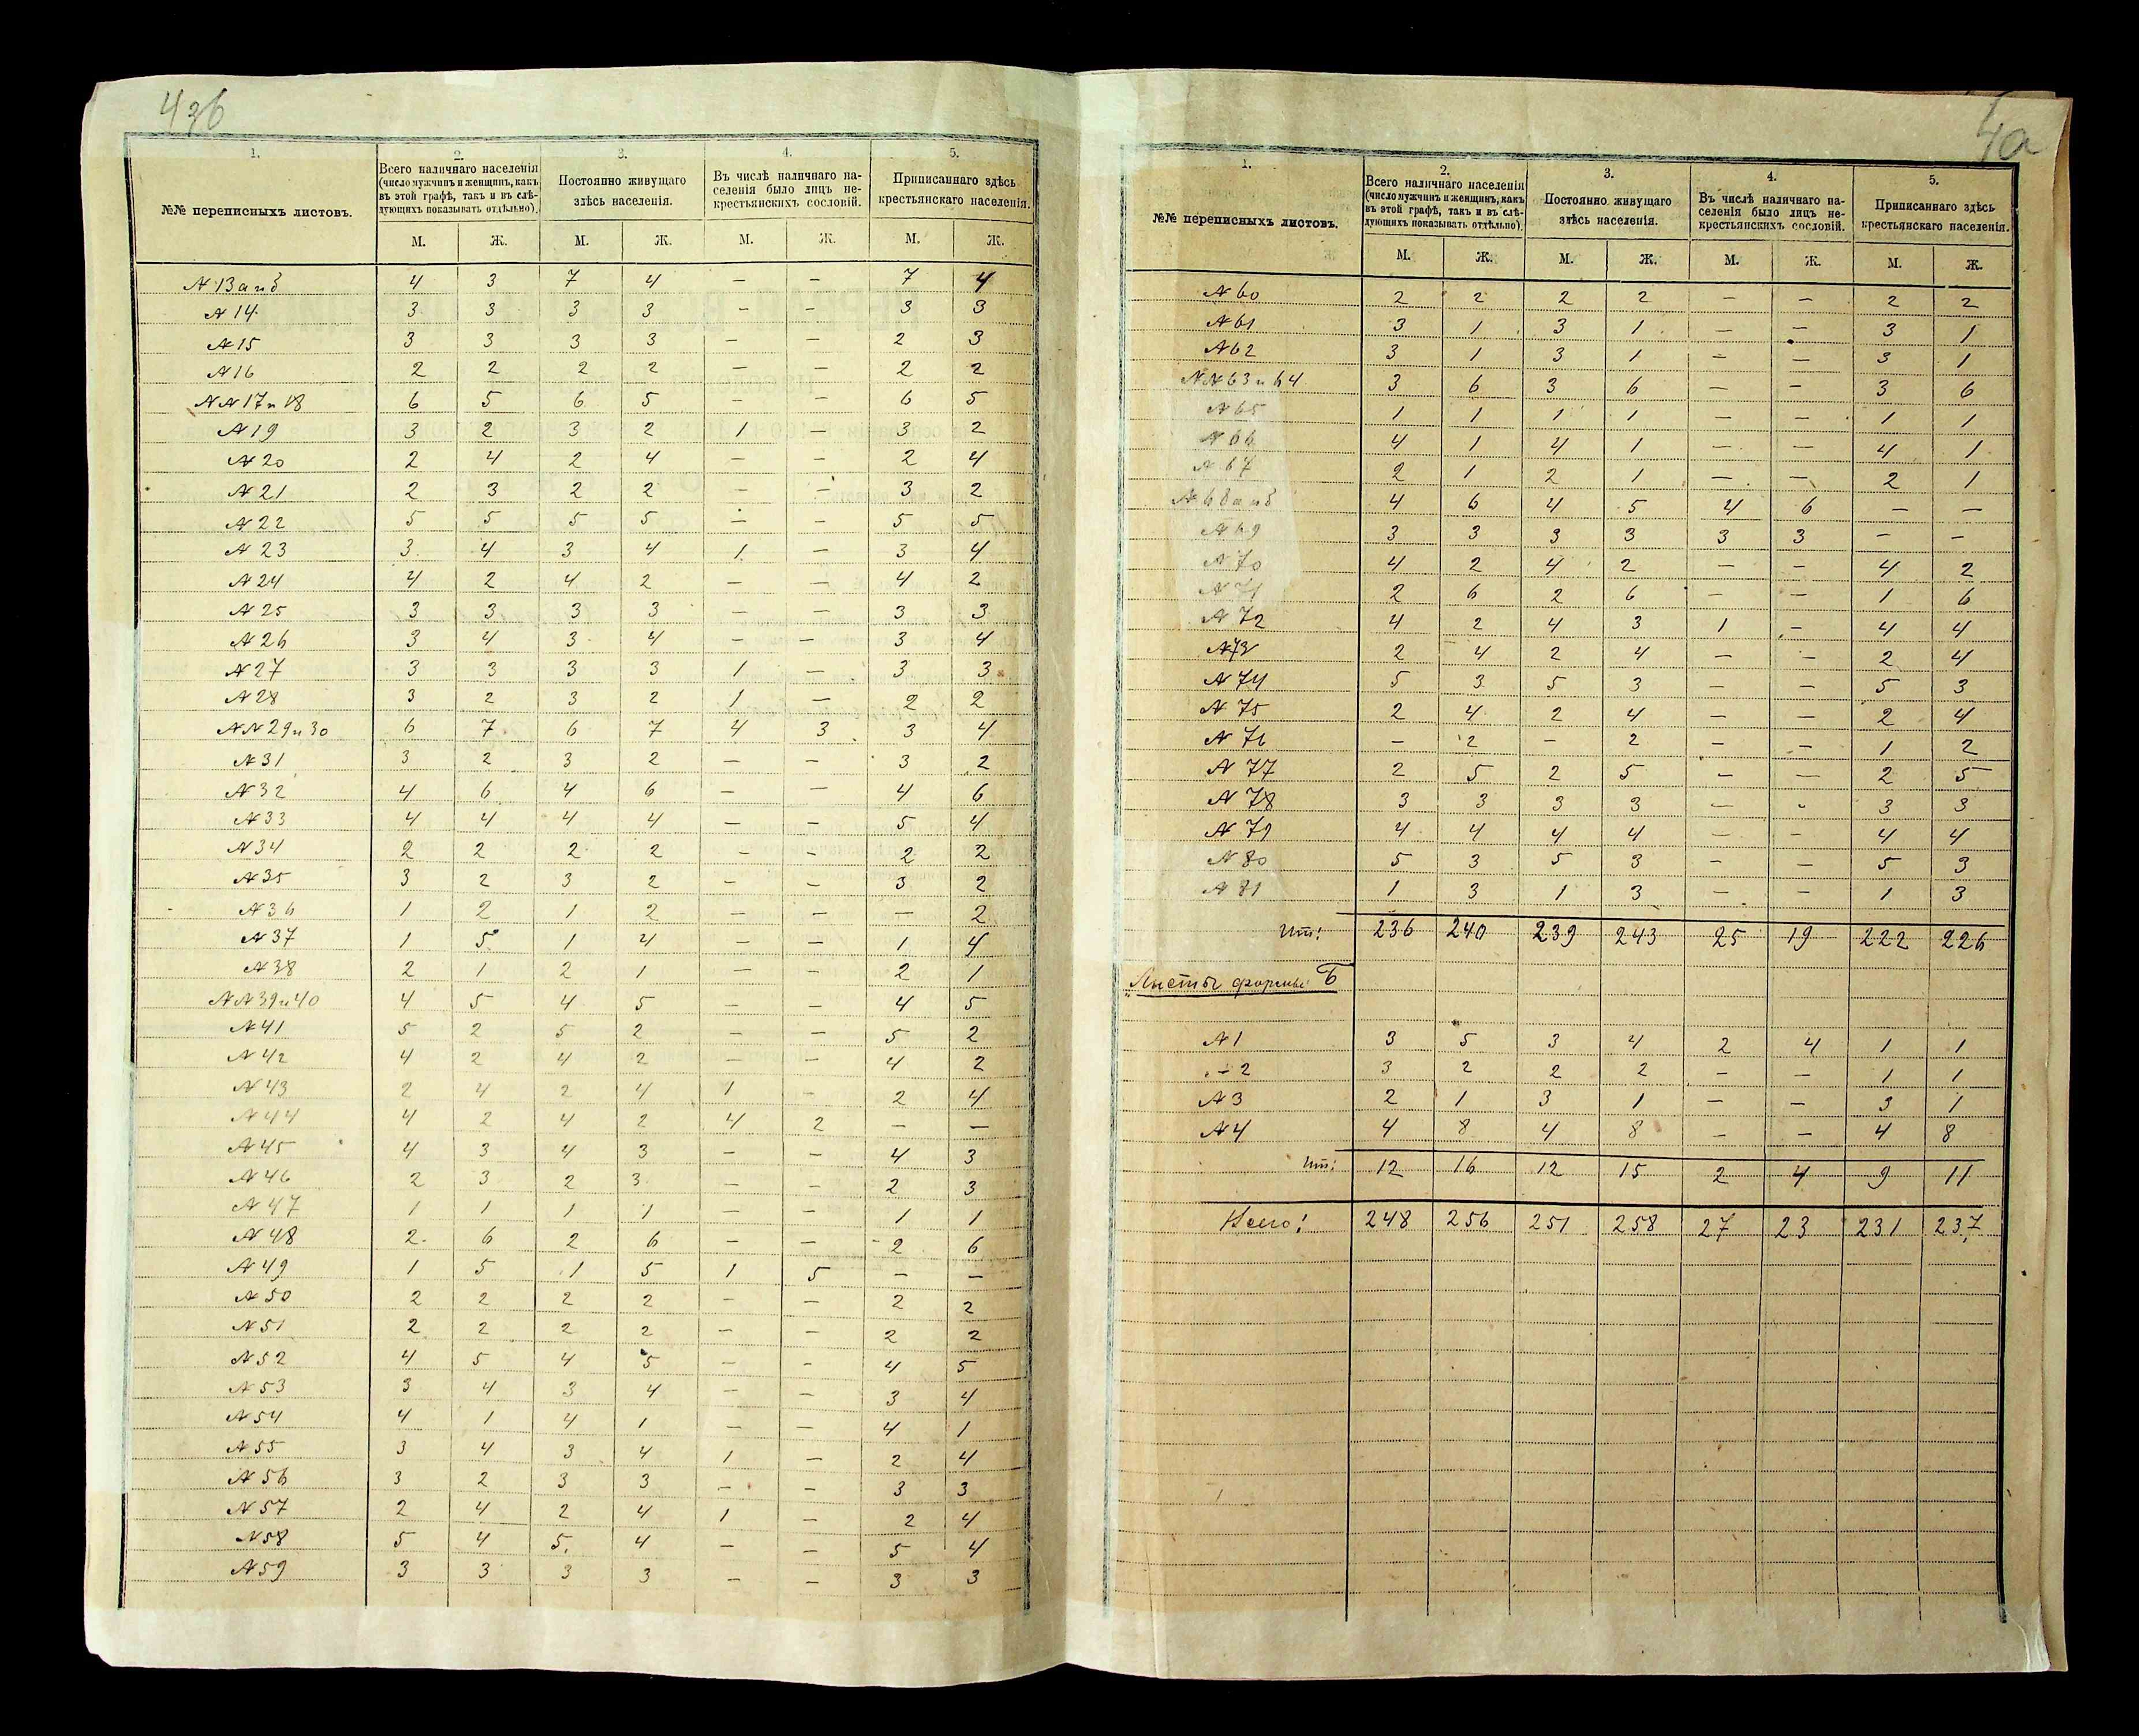 1. 2. 3. 4. 5.
№№ переписныхъ листовъ.
Всего наличнаго населенія
(число мужчинъ и женщинъ, какъ
въ этой графѣ, такъ и въ слѣ-
дующихъ показывать отдѣльно).
Постоянно живущаго
здѣсь населенія.
Въ числѣ наличнаго на-
селенія было лицъ не-
крестьянскихъ сословій.
Приписаннаго здѣсь
крестьянскаго населенія.
М. Ж. М. Ж. М. Ж. М. Ж.
№ 13 а и б 4 3 7 4 — — 7 4
№ 14 3 3 3 3 — — 3 3
№ 15 3 3 3 3 — — 2 3
№ 16 2 2 2 2 — — 2 2
№№ 17 и 18 6 5 6 5 — — 6 5
№ 19 3 2 3 2 1 — 3 2
№ 20 2 4 2 4 — — 2 4
№ 21 2 3 2 2 — — 3 2
№ 22 5 5 5 5 — — 5 5
№ 23 3 4 3 4 1 — 3 4
№ 24 4 2 4 2 — — 4 2
№ 25 3 3 3 3 — — 3 3
№ 26 3 4 3 4 — — 3 4
№ 27 3 3 3 3 1 — 3 3
№ 28 3 2 3 2 1 — 2 2
№№ 29 и 30 6 7 6 7 4 3 3 4
№ 31 3 2 3 2 — — 3 2
№ 32 4 6 4 6 — — 4 6
№ 33 4 4 4 4 — — 5 4
№ 34 2 2 2 2 — — 2 2
№ 35 3 2 3 2 — — 3 2
№ 36 1 2 1 2 — — — 2
№ 37 1 5 1 4 — — 1 4
№ 38 2 1 2 1 — — 2 1
№№ 39 и 40 4 5 4 5 — — 4 5
№ 41 5 2 5 2 — — 5 2
№ 42 4 2 4 2 — — 4 2
№ 43 2 4 2 4 1 — 2 4
№ 44 4 2 4 2 4 2 — —
№ 45 4 3 4 3 — — 4 3
№ 46 2 3 2 3 — — 2 3
№ 47 1 1 1 1 — — 1 1
№ 48 2 6 2 6 — — 2 6
№ 49 1 5 1 5 1 5 — —
№ 50 2 2 2 2 — — 2 2
№ 51 2 2 2 2 — — 2 2
№ 52 4 5 4 5 — — 4 5
№ 53 3 4 3 4 — — 3 4
№ 54 4 1 4 1 — — 4 1
№ 55 3 4 3 4 1 — 2 4
№ 56 3 2 3 3 — — 3 3
№ 57 2 4 2 4 1 — 2 4
№ 58 5 4 5 4 — — 5 4
№ 59 3 3 3 3 — — 3 3
4а
1. 2. 3. 4. 5.
№№ переписныхъ листовъ.
Всего наличнаго населенія
(число мужчинъ и женщинъ, какъ
въ этой графѣ, такъ и въ слѣ-
дующихъ показывать отдѣльно).
Постоянно живущаго
здѣсь населенія.
Въ числѣ наличнаго на-
селенія было лицъ не-
крестьянскихъ сословій.
Приписаннаго здѣсь
крестьянскаго населенія.
М. Ж. М. Ж. М. Ж. М. Ж.
№ 60 2 2 2 2 — — 2 2
№ 61 3 1 3 1 — — 3 1
№ 62 3 1 3 1 — — 3 1
№№ 63 и 64 3 6 3 6 — — 3 6
№ 65 1 1 1 1 — — 1 1
№ 66 4 1 4 1 — — 4 1
№ 67 2 1 2 1 — — 2 1
№ 68 а и б 4 6 4 5 4 6 — —
№ 69 3 3 3 3 3 3 — —
№ 70 4 2 4 2 — — 4 2
№ 71 2 6 2 6 — — 1 6
№ 72 4 2 4 3 1 — 4 4
№ 73 2 4 2 4 — — 2 4
№ 74 5 3 5 3 — — 5 3
№ 75 2 4 2 4 — — 2 4
№ 76 — 2 — 2 — — 1 2
№ 77 2 5 2 5 — — 2 5
№ 78 3 3 3 3 — — 3 3
№ 79 4 4 4 4 — — 4 4
№ 80 5 3 5 3 — — 5 3
№ 81 1 3 1 3 — — 1 3
Ит: 236 240 239 243 25 19 222 226
Листы формы Б
№ 1 3 5 3 4 2 4 1 1
— 2 3 2 2 2 — — 1 1
№ 3 2 1 3 1 — — 3 1
№ 4 4 8 4 8 — — 4 8
Ит: 12 16 12 15 2 4 9 11
Всего: 248 256 251 258 27 23 231 237